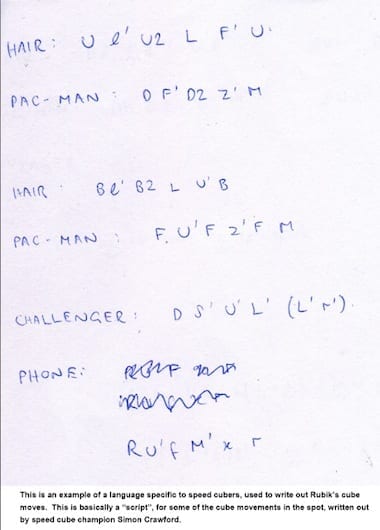 HAIR: U l' U2 L F' U'
PAC-MAN: D F' D2 Z' M
HAIR B l' B2 L U' B
PAC-MAN: F U' F Z' F M
CHALLENGER: D S' U' L' (L' r').
PHONE:
R U' f M' x r
This is an example of a language specific to speed cubers, used to write out Rubik's cube
moves. This is basically a "script", for some of the cube movements in the spot, written out
by speed cube champion Simon Crawford.